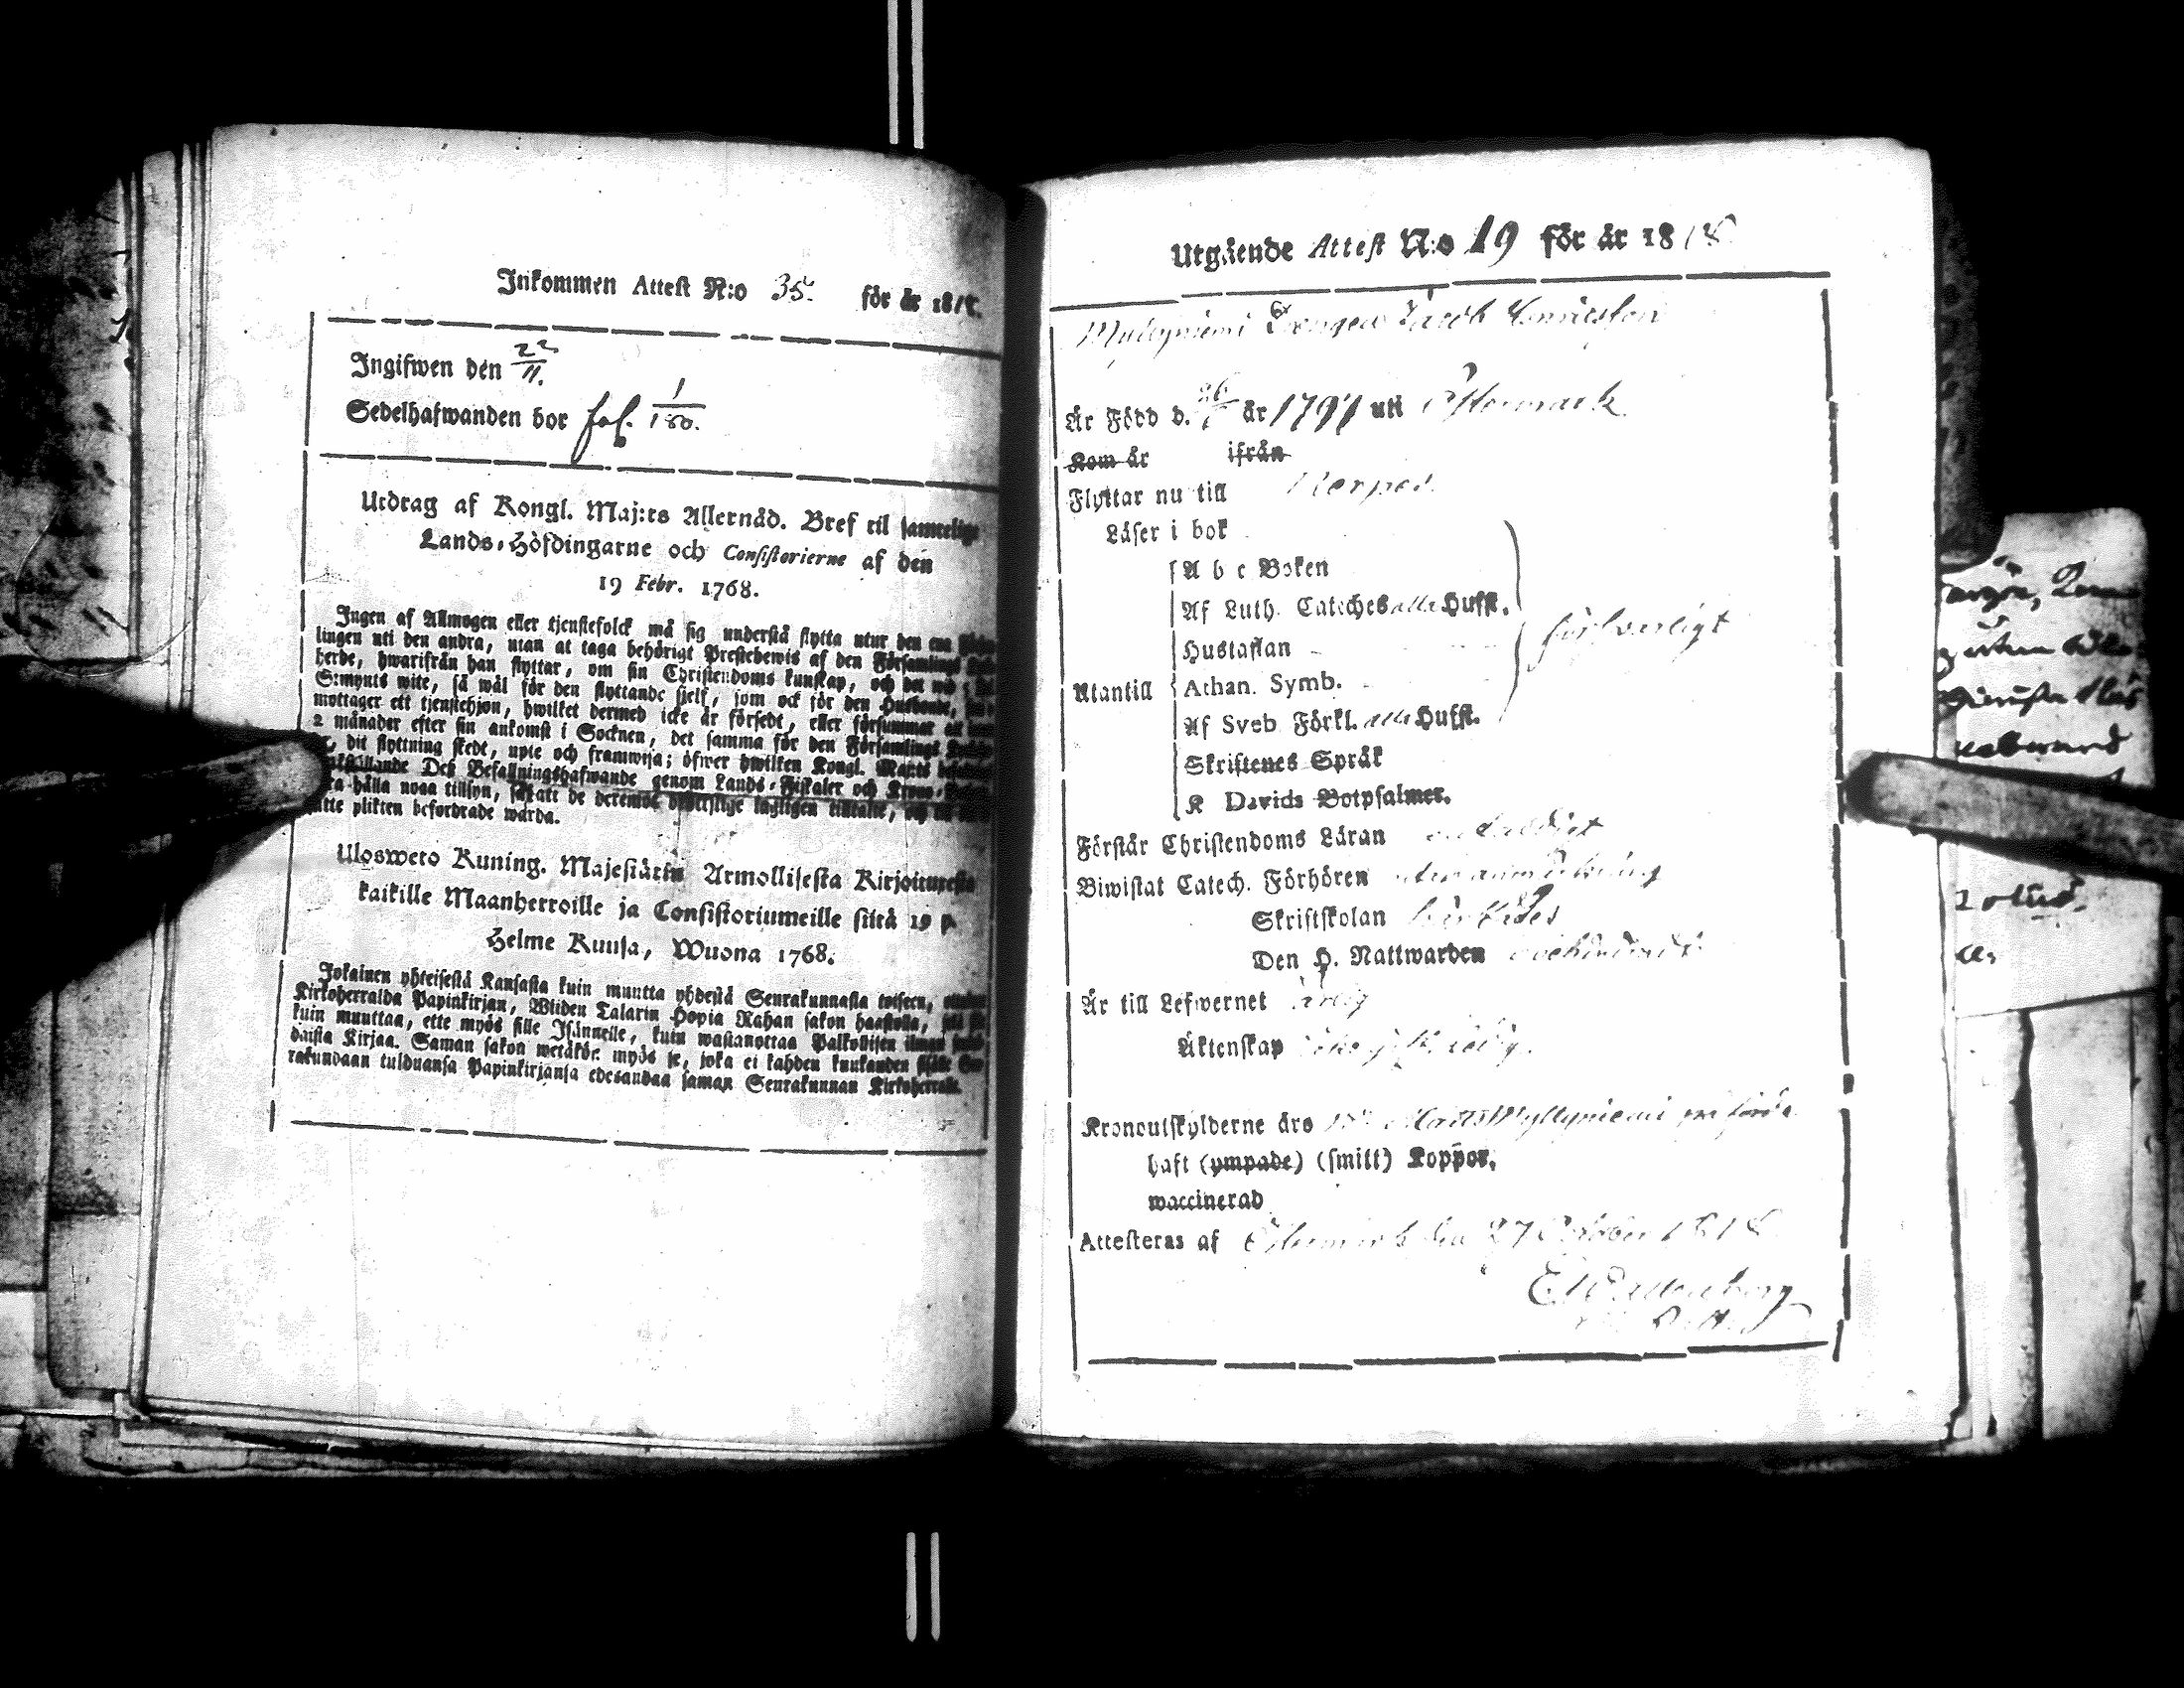 Inkommen Attest N:o 35. för år 1818.
Ingifwen den 22/11.
Sedelhafwanden bor fol. 1/180.
Utdrag af Kongl. Maj:ts Allernåd. Bref til samtelige
Lands-Höfdingarne och Consistorierne af den
19 Febr. 1768.
Ingen af Allmogen eller tjenstefolck må sig understå flytta utur den ena
lingen uti den andra, utan at taga behörigt Prestebewis af den Församlings
herde, hwarifrån han flyttar, om sin Christendoms kunskap, och det wid
S:mynts wite, så wäl för den flyttande sjelf, som ock för den Husbonde,
mottager ett tjenstehjon, hwilket dermed icke är försedt, eller försummar at
2 månader efter sin ankomst i Socknen, det samma för den Församlings
dit flyttning skedt, upte och framwisa; öfwer hwilken Kongl. Maj:ts
Des Befallningshafwande genom Lands-Fiskaler och Krono-
hålla noga tillsyn, så att de deremot lagligen tiltalte, och
plikten befordrade warda.
Ulosweto Kuning. Majestätin Armollisesta Kirjoituxesta
kaikille Maanherroille ja Consistoriumeille siitä 19 p.
Helme Kuusa, Wuona 1768.
Jokainen yhteisestä Kansasta kuin muutta yhdestä Seurakunnasta toiseen,
Kirkoherralda Papinkirjan, Wliden Talarin Hopia Rahan sakon haastolla,
kuin muuttaa, ette myös sille Isännelle, kuin wastanottaa Palkollisen ilman
daista Kirjaa. Saman sakon wetäkön myös se, joka ei kahden kuukauden sisäle
rakundaan tulduansa Papinkirjansa edesandaa saman Seurakunnan Kirkoherralle.
Utgående Attest N:o 19 för år 1818
Myllyniemi Drengen Jacob Henricsson
Är Född d. 26/ år 1791 uti Östermark
Kom år ifrån
Flyttar nu till Nerpes.
Läser i bok
A b c Boken
Af Luth. Cateches alla Hufst.
Hustaflan
försvarligt
Utantill
Athan. Symb.
Af Sveb Förkl. alla Hufst.
Skriftenes Språk
K Davids Botpsalmer.
Förstår Christendoms Läran
Biwistat Catech. Förhören utan anmärkning
Skriftskolan
Den H. Nattwarden
Är till Lefwernet ärlig
Äktenskap ledig.
Kronoutskylderne äro Matts Myllyniemi påförde
haft (ympade) (smitt) Koppor,
waccinerad
Attesteras af Östermark den 27 October 1818